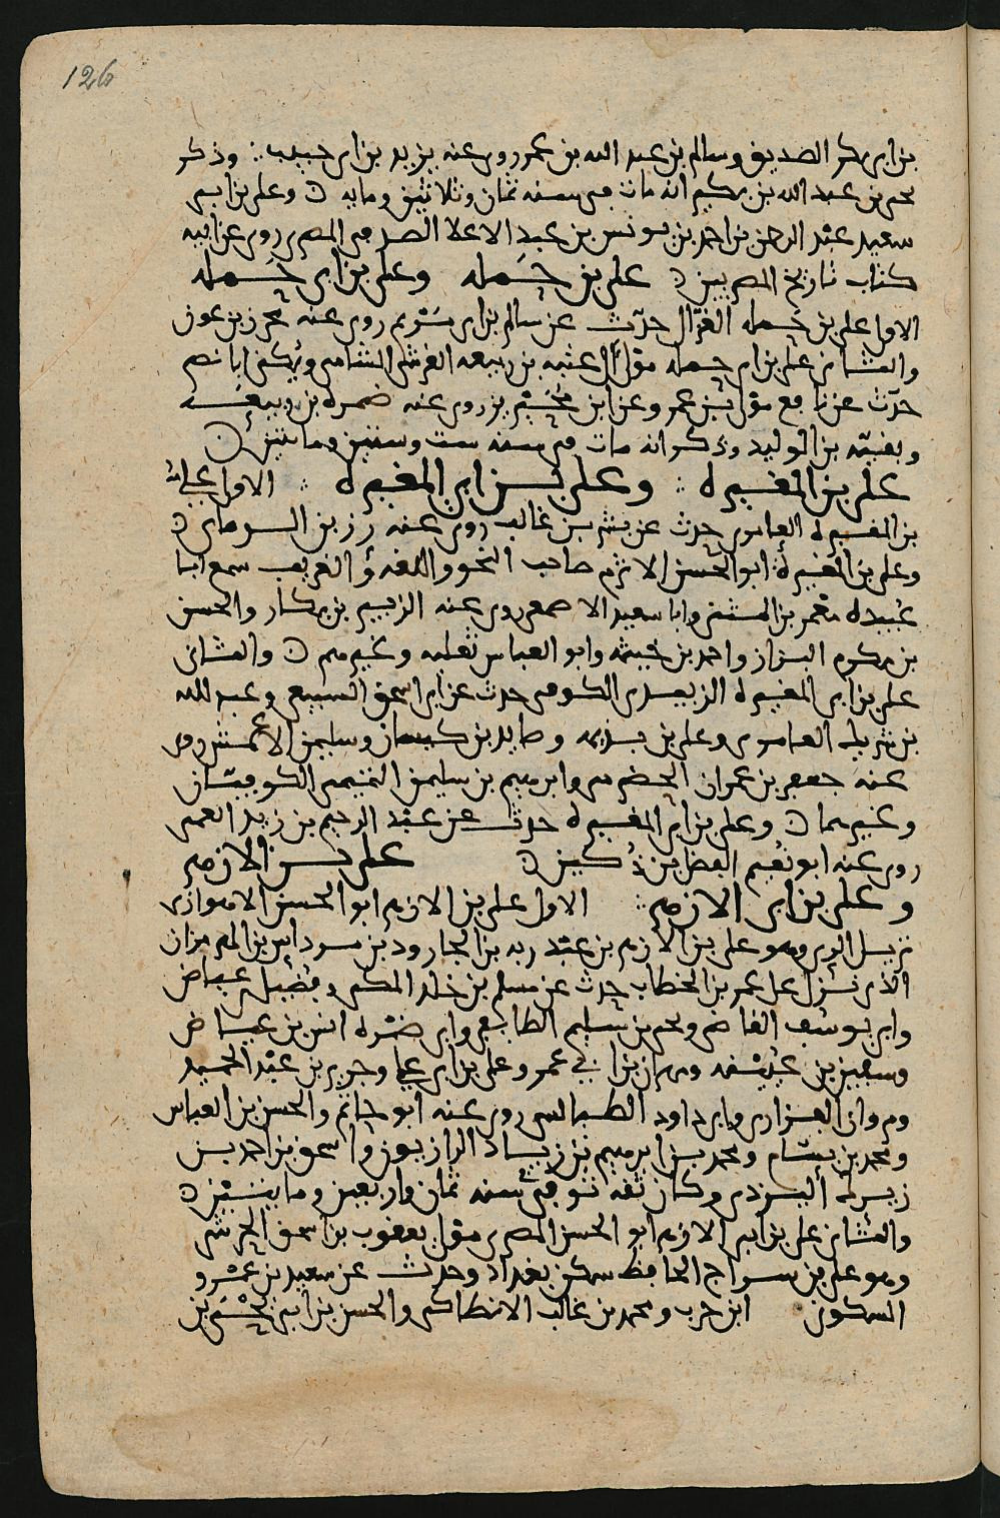 126
بن ابى بكر الصديق وسالم بن عبد الله بن عمر روى عنه يزيد بن ابى حبيب ∴ وذكر
يحيى بن عبد الله بن بكير انه مات فى سنه ثمان وثلاثين ومايه ن وعلى بن ابى
سعيد عبد الرحمن بن احمد بن يونس بن عبد الاعلا الصدفى المصرى روى عن ابيه
كتاب تاريخ المصريين ن على بن حَمَله وعلى بن ابى حَمَله
الاول على بن حمله الغزّال حدّث عن سالم بن ابى مَرْيم روى عنه محرز بن عون
والثانى على بن ابى حمله مولى آل عتبه بن ربيعه القرشى الشامى ويُكنى ابا نصر
حدّث عن نافع مولى بن عمر وعن ابن مُحَيْريز روى عنه ضمره بن ربيعَه
وبقيّه بن الوليد وذكر انه مات فى سنه ست وستين ومائتين ن
على بن المغيره ∴ وعلى بن ابى المغيره ∴ الاول على
بن المغيره العامرى حدث عن بشر بن غالب روى عنه رزين السرمارى ن
وعلى بن المغيره ابو الحسن الاثرم صاحب النحو واللغه والغريب سمع ابا
عُبيده مَعْمر بن المثنى وابا سعيد الاصمعى روى عنه الزبير بن بكار والحسن
بن مكرم البزاز واحمد بن خيثمه وابو العباس ثعلب وغيرهم ن والثانى
على بن ابى المغيره الزبيدى الكوفى حدث عن ابى اسحق السبيعى وعبد الله
بن شريك العامرى وعلى بن بذيمه وصالح بن كيسان وسليمن الاعمش روى
عنه جعفر بن عمران الحضرمى وابرهيم بن سليمن التميمى الكوفيّان
وغيرهما ن وعلى بن ابى المغيره حدث عن عبد الرحيم بن زيد العمى
روى عنه ابو نُعيم الفضل بن دُكين ن على بن الازهر
وعلى بن ابى الازهر ∴ الاول على بن الازهر ابو الحسن الاهوازى
نزيل الرى وهو على بن الازهر بن عبد ربه بن الجارود بن مرداس بن الهرمزان
الذى نزل على عمر بن الخطاب حدث عن مسلم بن خلد المكى وفضيل عياض
وابى يوسف القاضى ويحيى بن سليم الطايفى وابى ضَمْره انس بن عياض
وسفين بن عُيَيْنه ومهران بن ابى عمر وعلى بن ابى على وجرير بن عبْد الحميد
ومروان الفزارى وابى داود الطيالسى روى عنه ابو حاتم والحسن بن العباس
ومحمد بن بسّام ومحمد بن ابرهيم بن زياد الرازيون واسحق بن احمد بن
زيرك اليزدى وكان ثقه توفى سنه ثمان واربعين ومايتين ن
والثانى على بن ابى الازهر ابو الحسن المصرى مولى يعقوب بن اسحق الحرشى
وهو على بن سراج الحافظ سكن بغداد وحدث عن سعيد بن عمْرو
السكونى ابن حرب ومحمد بن غالب الانطاكى والحسن بن ابى يحْيَى بن